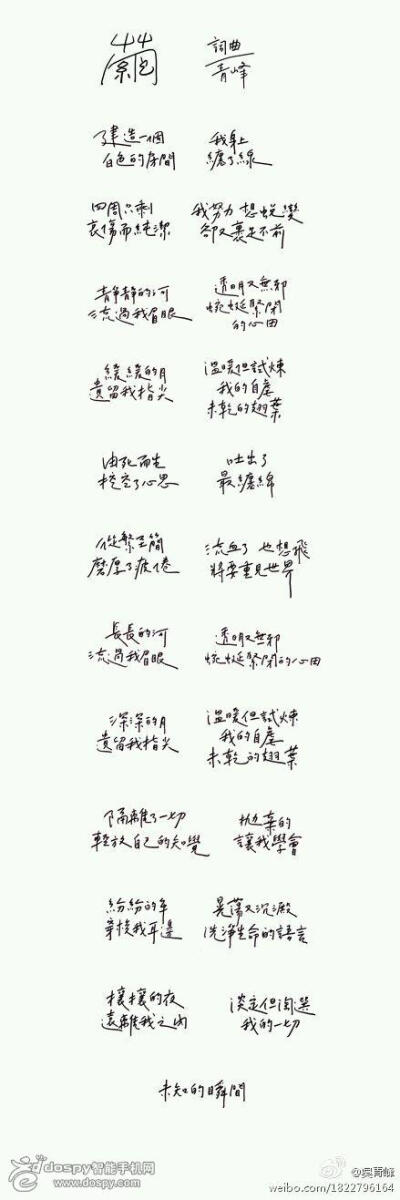 繭
詞曲
青峰
建造一個
白色的房間
我身上
纏了線
四周只剩
哀傷而純潔
我努力 想蛻變
卻又裹足不前
靜靜的河
流過我眉眼
透明又無邪
蜿蜒緊閉
的心田
緩緩的月
遺留我指尖
溫暖但試煉
我的自虐
未乾的翅葉
由死而生
挖空了心思
吐出了
最纏綿
從繁至簡
磨厚了疲倦
流血了 也想飛
將要重見世界
長長的河
流過我眉眼
透明又無邪
蜿蜒緊閉的心田
深深的月
遺留我指尖
溫暖但試煉
我的自虐
未乾的翅葉
隔離了一切
輕放自己的知覺
拋棄的
讓我學會
紛紛的年
穿梭我耳邊
晃蕩又沉澱
洗淨生命的語言
攘攘的夜
遠離我之內
淡定但淘選
我的一切
未知的瞬間
dospy智能手机网
dospy.com
@吴青峰
weibo.com/1822796164